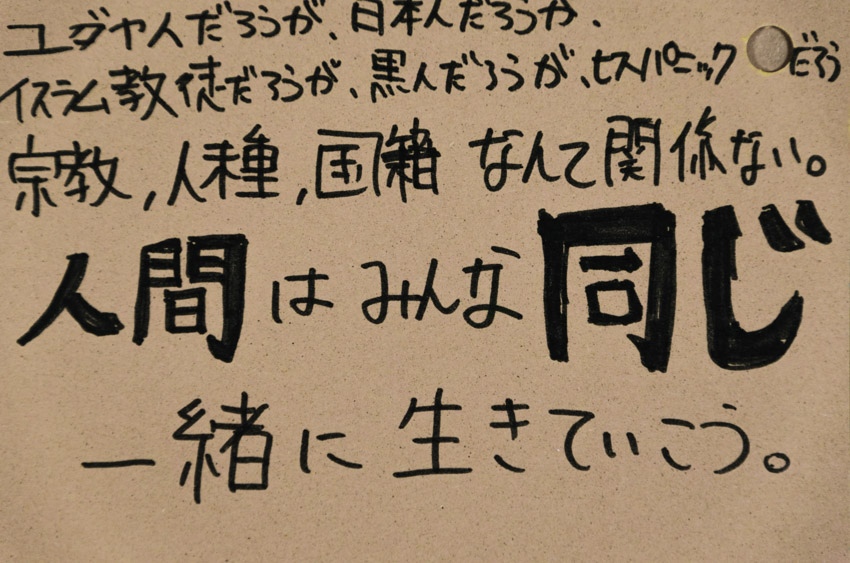 ユダヤ人だろうが、日本人だろうが、
イスラム教徒だろうが、黒人だろうが、ヒスパニックだろう
宗教,人種,国籍 なんて関係ない。
人間はみんな同じ
一緒に生きていこう。